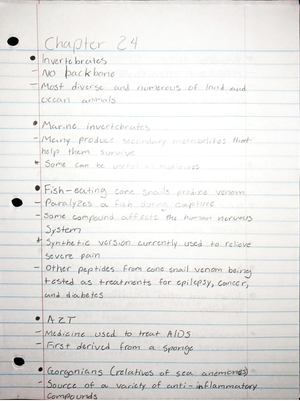 Chapter 24
• Invertebrates
- No backbone
- Most diverse and numerous of land and
ocean animals
• Marine invertebrates
- Many produce secondary metabolites that
help them survive
* Some can be useful as medicines
• Fish-eating cone snails produce venom
- Paralyzes a fish during capture
- Some compound affects the human nervous
System
* Synthetic version currently used to relieve
severe pain
- Other peptides from cone snail venom being
tested as treatments for epilepsy, cancer,
and diabetes
• AZT
- Medicine used to treat AIDS
- First derived from a sponge
• Gorgonians (relatives of sea anemones)
- Source of a variety of anti-inflammatory
compounds